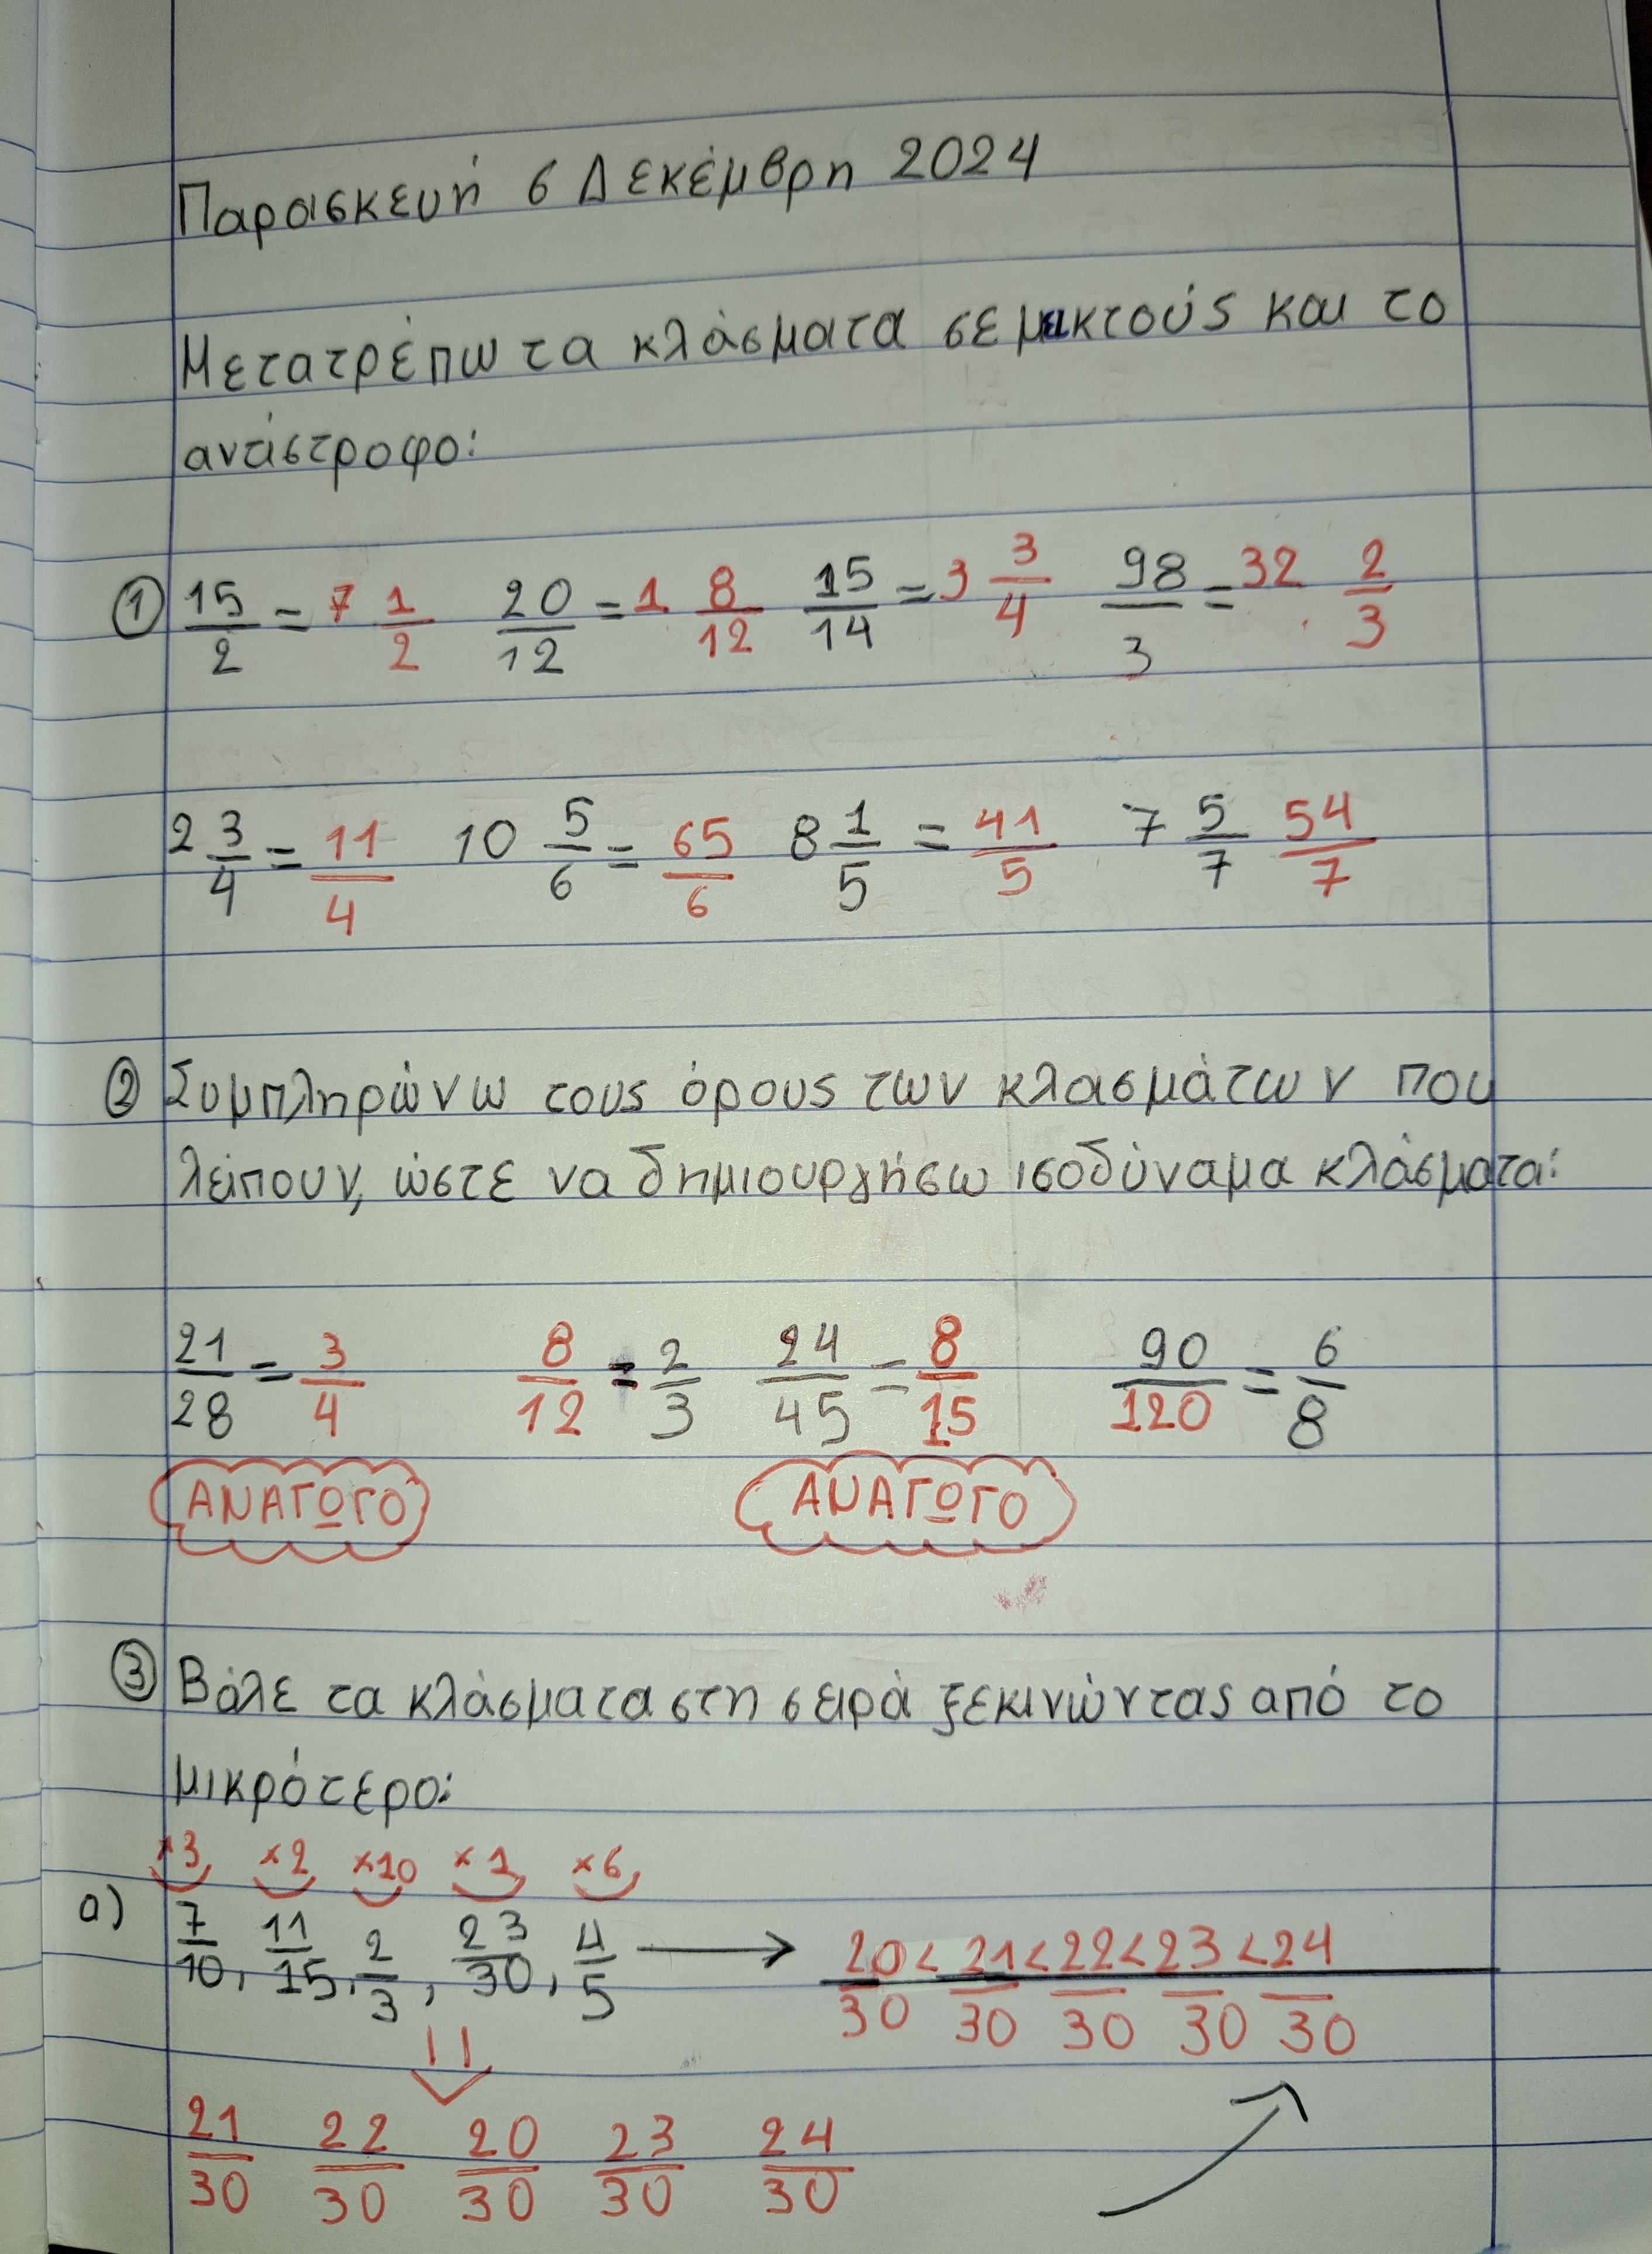 Παρασκευή 6 Δεκέμβρη 2024
Μετατρέπω τα κλάσματα σε μεικτούς και το
αντίστροφο:
① 15/2 = 7 1/2 20/12 = 1 8/12 15/14 = 3 3/4 98/3 = 32 2/3
2 3/4 = 11/4 10 5/6 = 65/6 8 1/5 = 41/5 7 5/7 54/7
② Συμπληρώνω τους όρους των κλασμάτων που
λείπουν, ώστε να δημιουργήσω ισοδύναμα κλάσματα:
21/28 = 3/4 8/12 = 2/3 24/45 = 8/15 90/120 = 6/8
ΑΝΑΓΩΓΟ ΑΝΑΓΩΓΟ
③ Βάλε τα κλάσματα στη σειρά ξεκινώντας από το
μικρότερο:
×3 ×2 ×10 ×1 ×6
α) 7/10, 11/15, 2/3, 23/30, 4/5 → 20/30 < 21/30 < 22/30 < 23/30 < 24/30
21/30 22/30 20/30 23/30 24/30